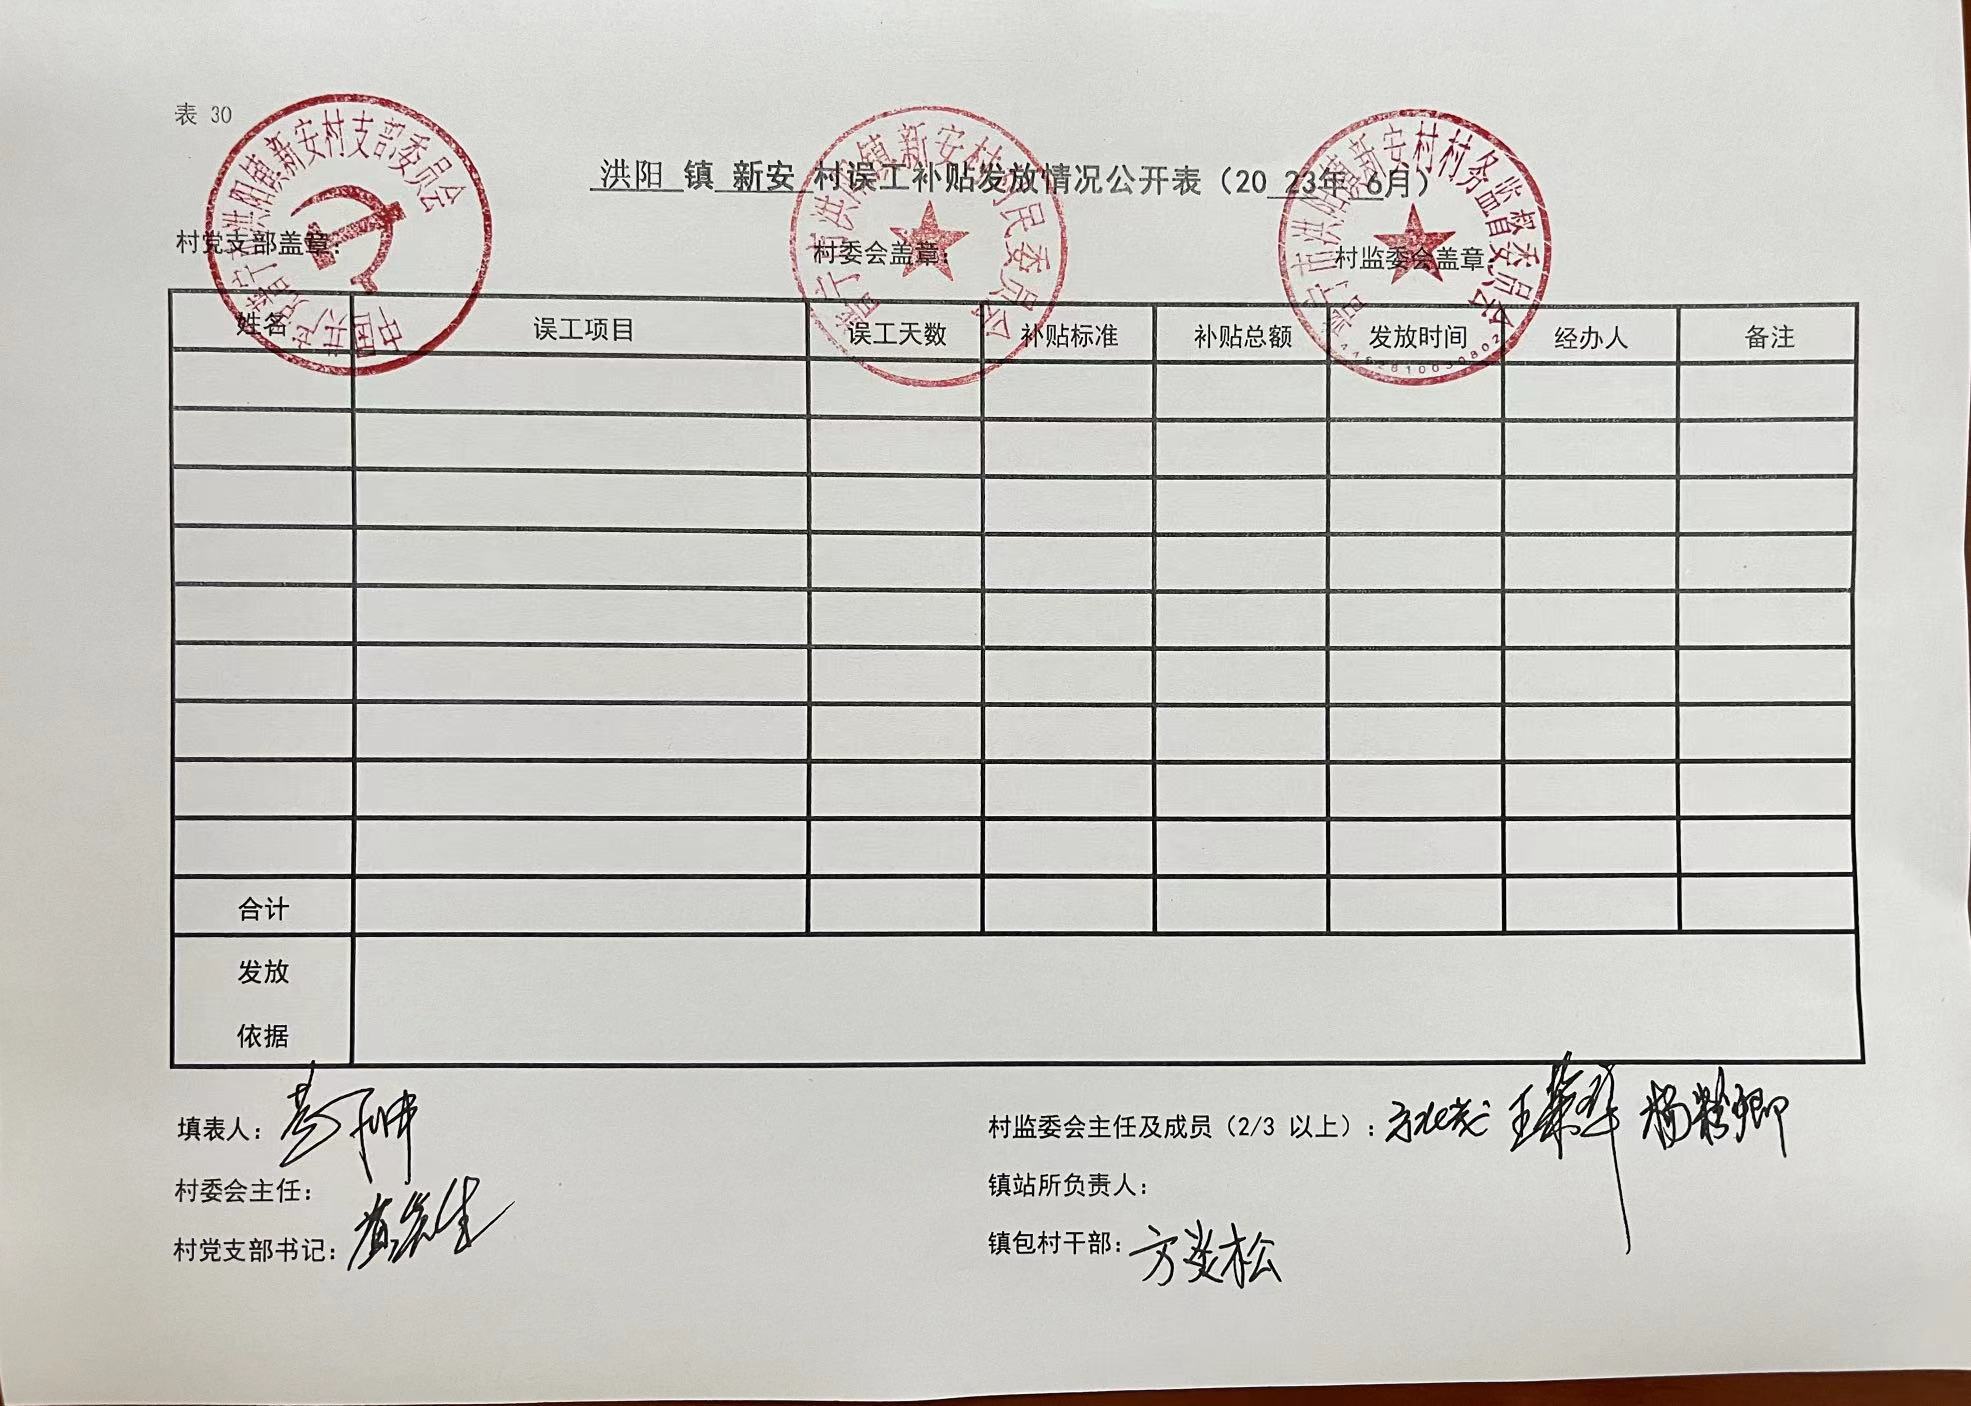 表 30
洪阳 镇 新安 村误工补贴发放情况公开表（20 23年 6月）
中国共产党普宁市洪阳镇新安村支部委员会
普宁市洪阳镇新安村村民委员会
普宁市洪阳镇新安村村务监督委员会
村党支部盖章： 村委会盖章： 村监委会盖章
姓名 误工项目 误工天数 补贴标准 补贴总额 发放时间 经办人 备注
合计
发放
依据
填表人： 村监委会主任及成员（2/3 以上）：
村委会主任： 镇站所负责人：
村党支部书记： 镇包村干部：